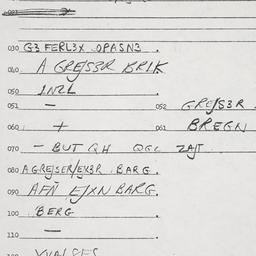 030 G3 FERL3X OPASN3 .
040 A GREJS3R KRIK
050 1NZL .
051 — 052 GREJS3R
060 + 061 BREGN
070 — BUT QH QGL ZAJT
080 AGREJSER/EX3R BARG.
090 AFÑ EJXN BARG.
100 BERG .
110 — .